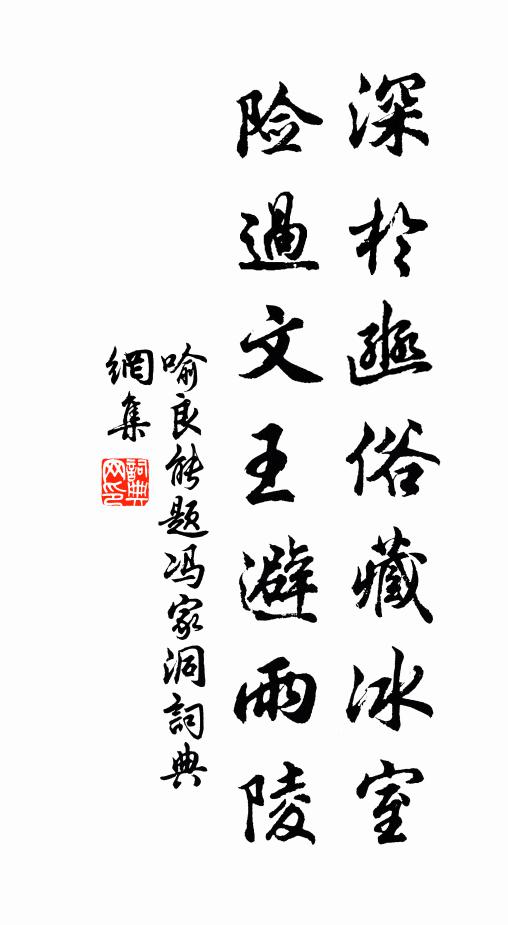 深於豳俗藏冰室
险過文王避雨陵
喻良能题冯家洞詞典
網集
詞典
网印